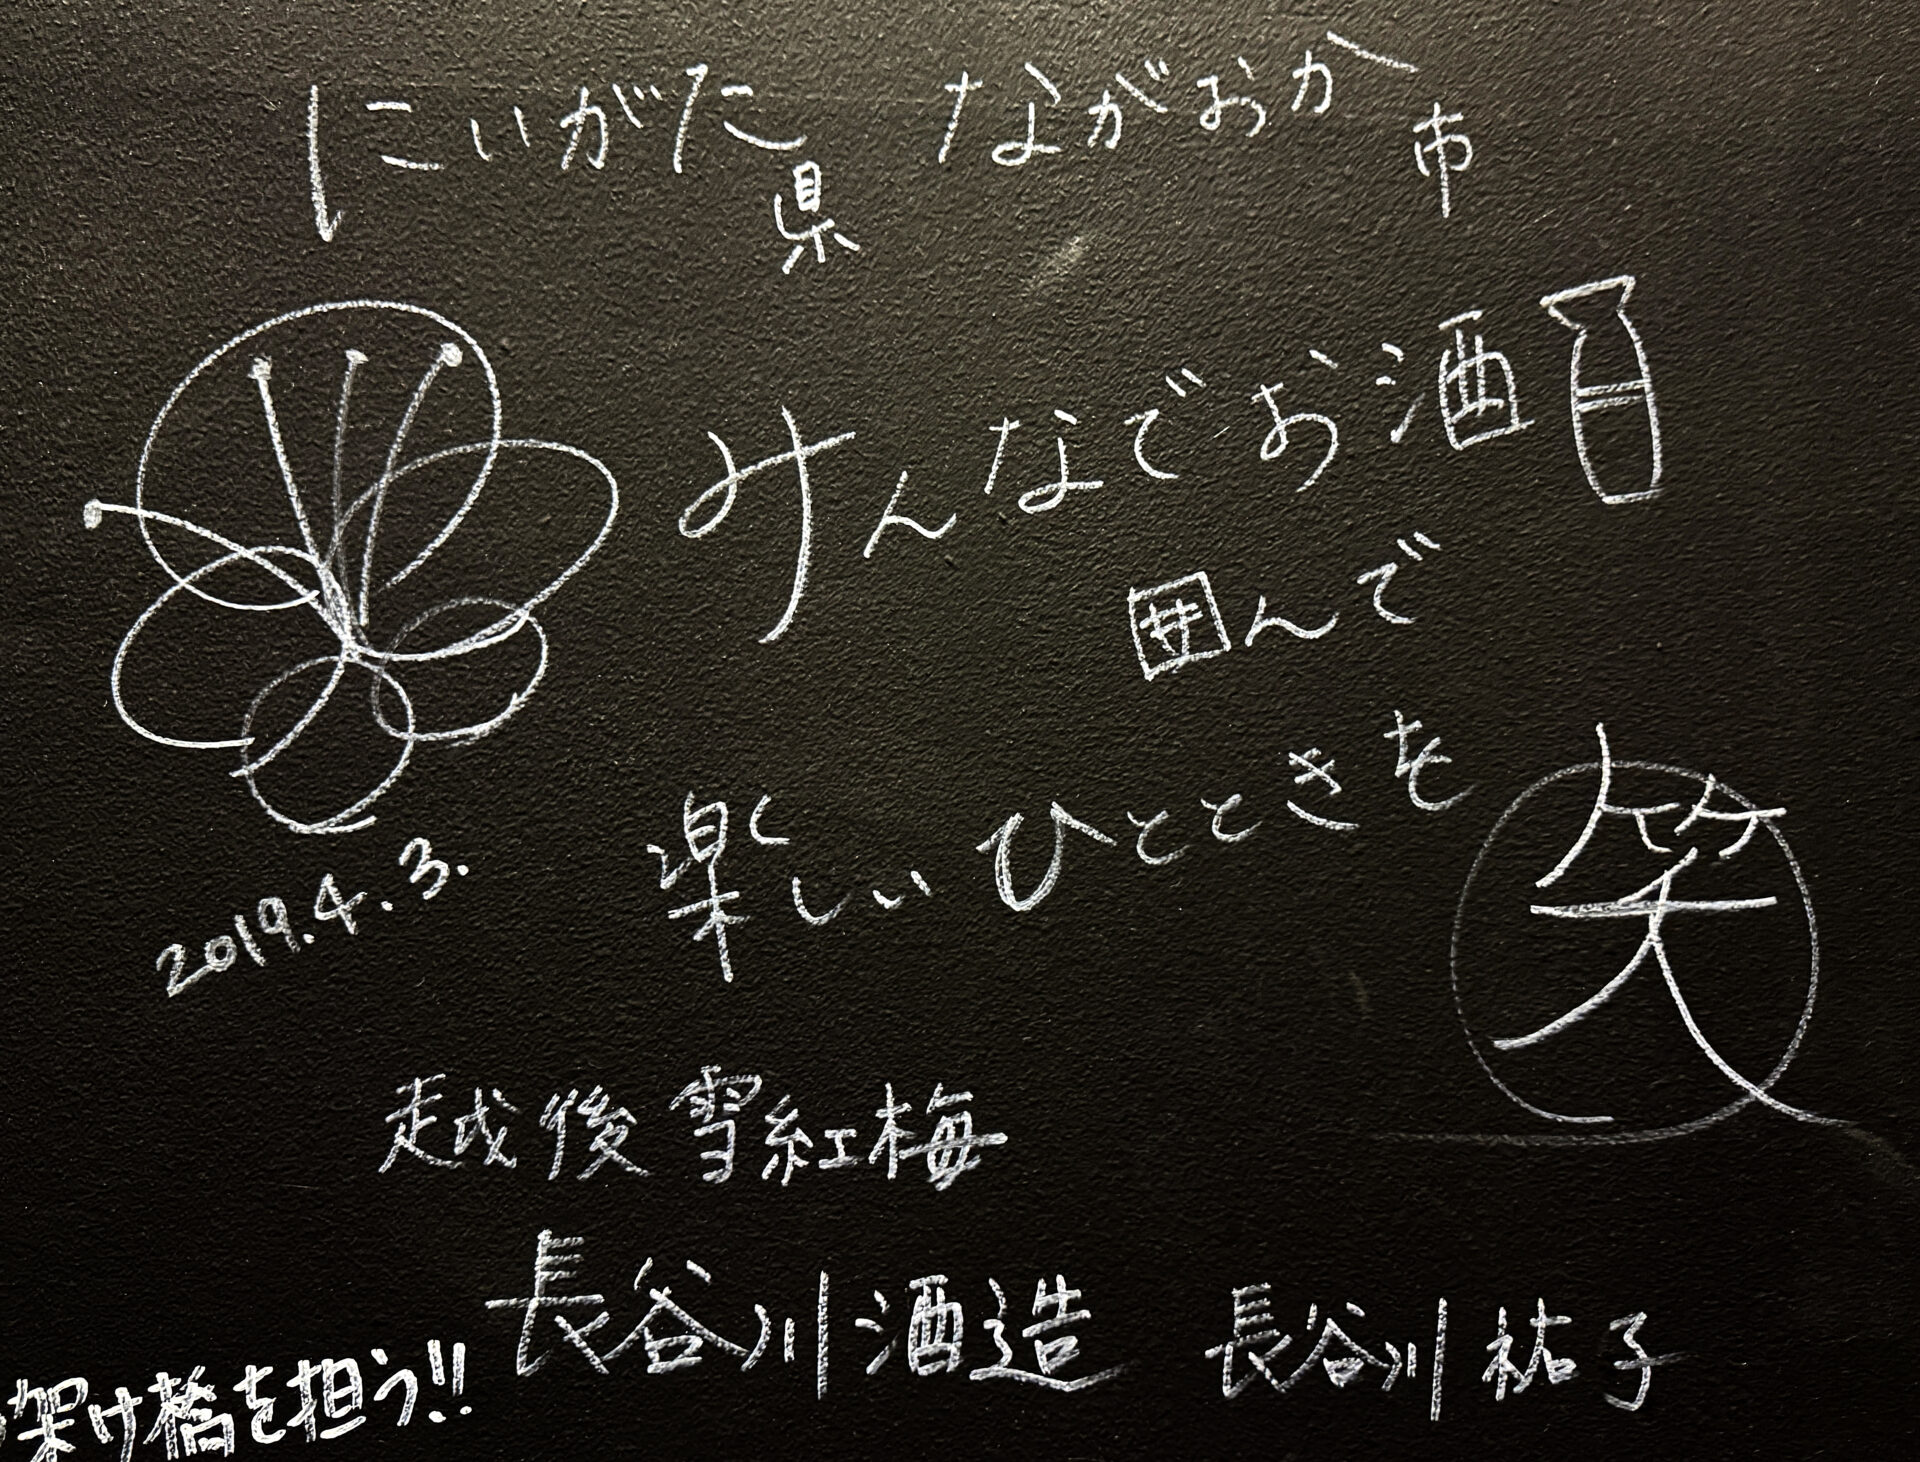 にいがた県 ながおか市
みんなでお酒
囲んで
楽しいひとときを
笑
2019.4.3.
越後雪紅梅
長谷川酒造 長谷川祐子
架け橋を担う!!